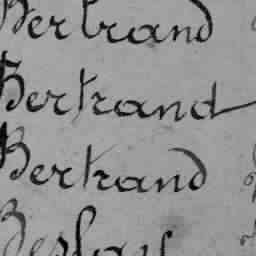 Bertrand
Bertrand
Bertrand